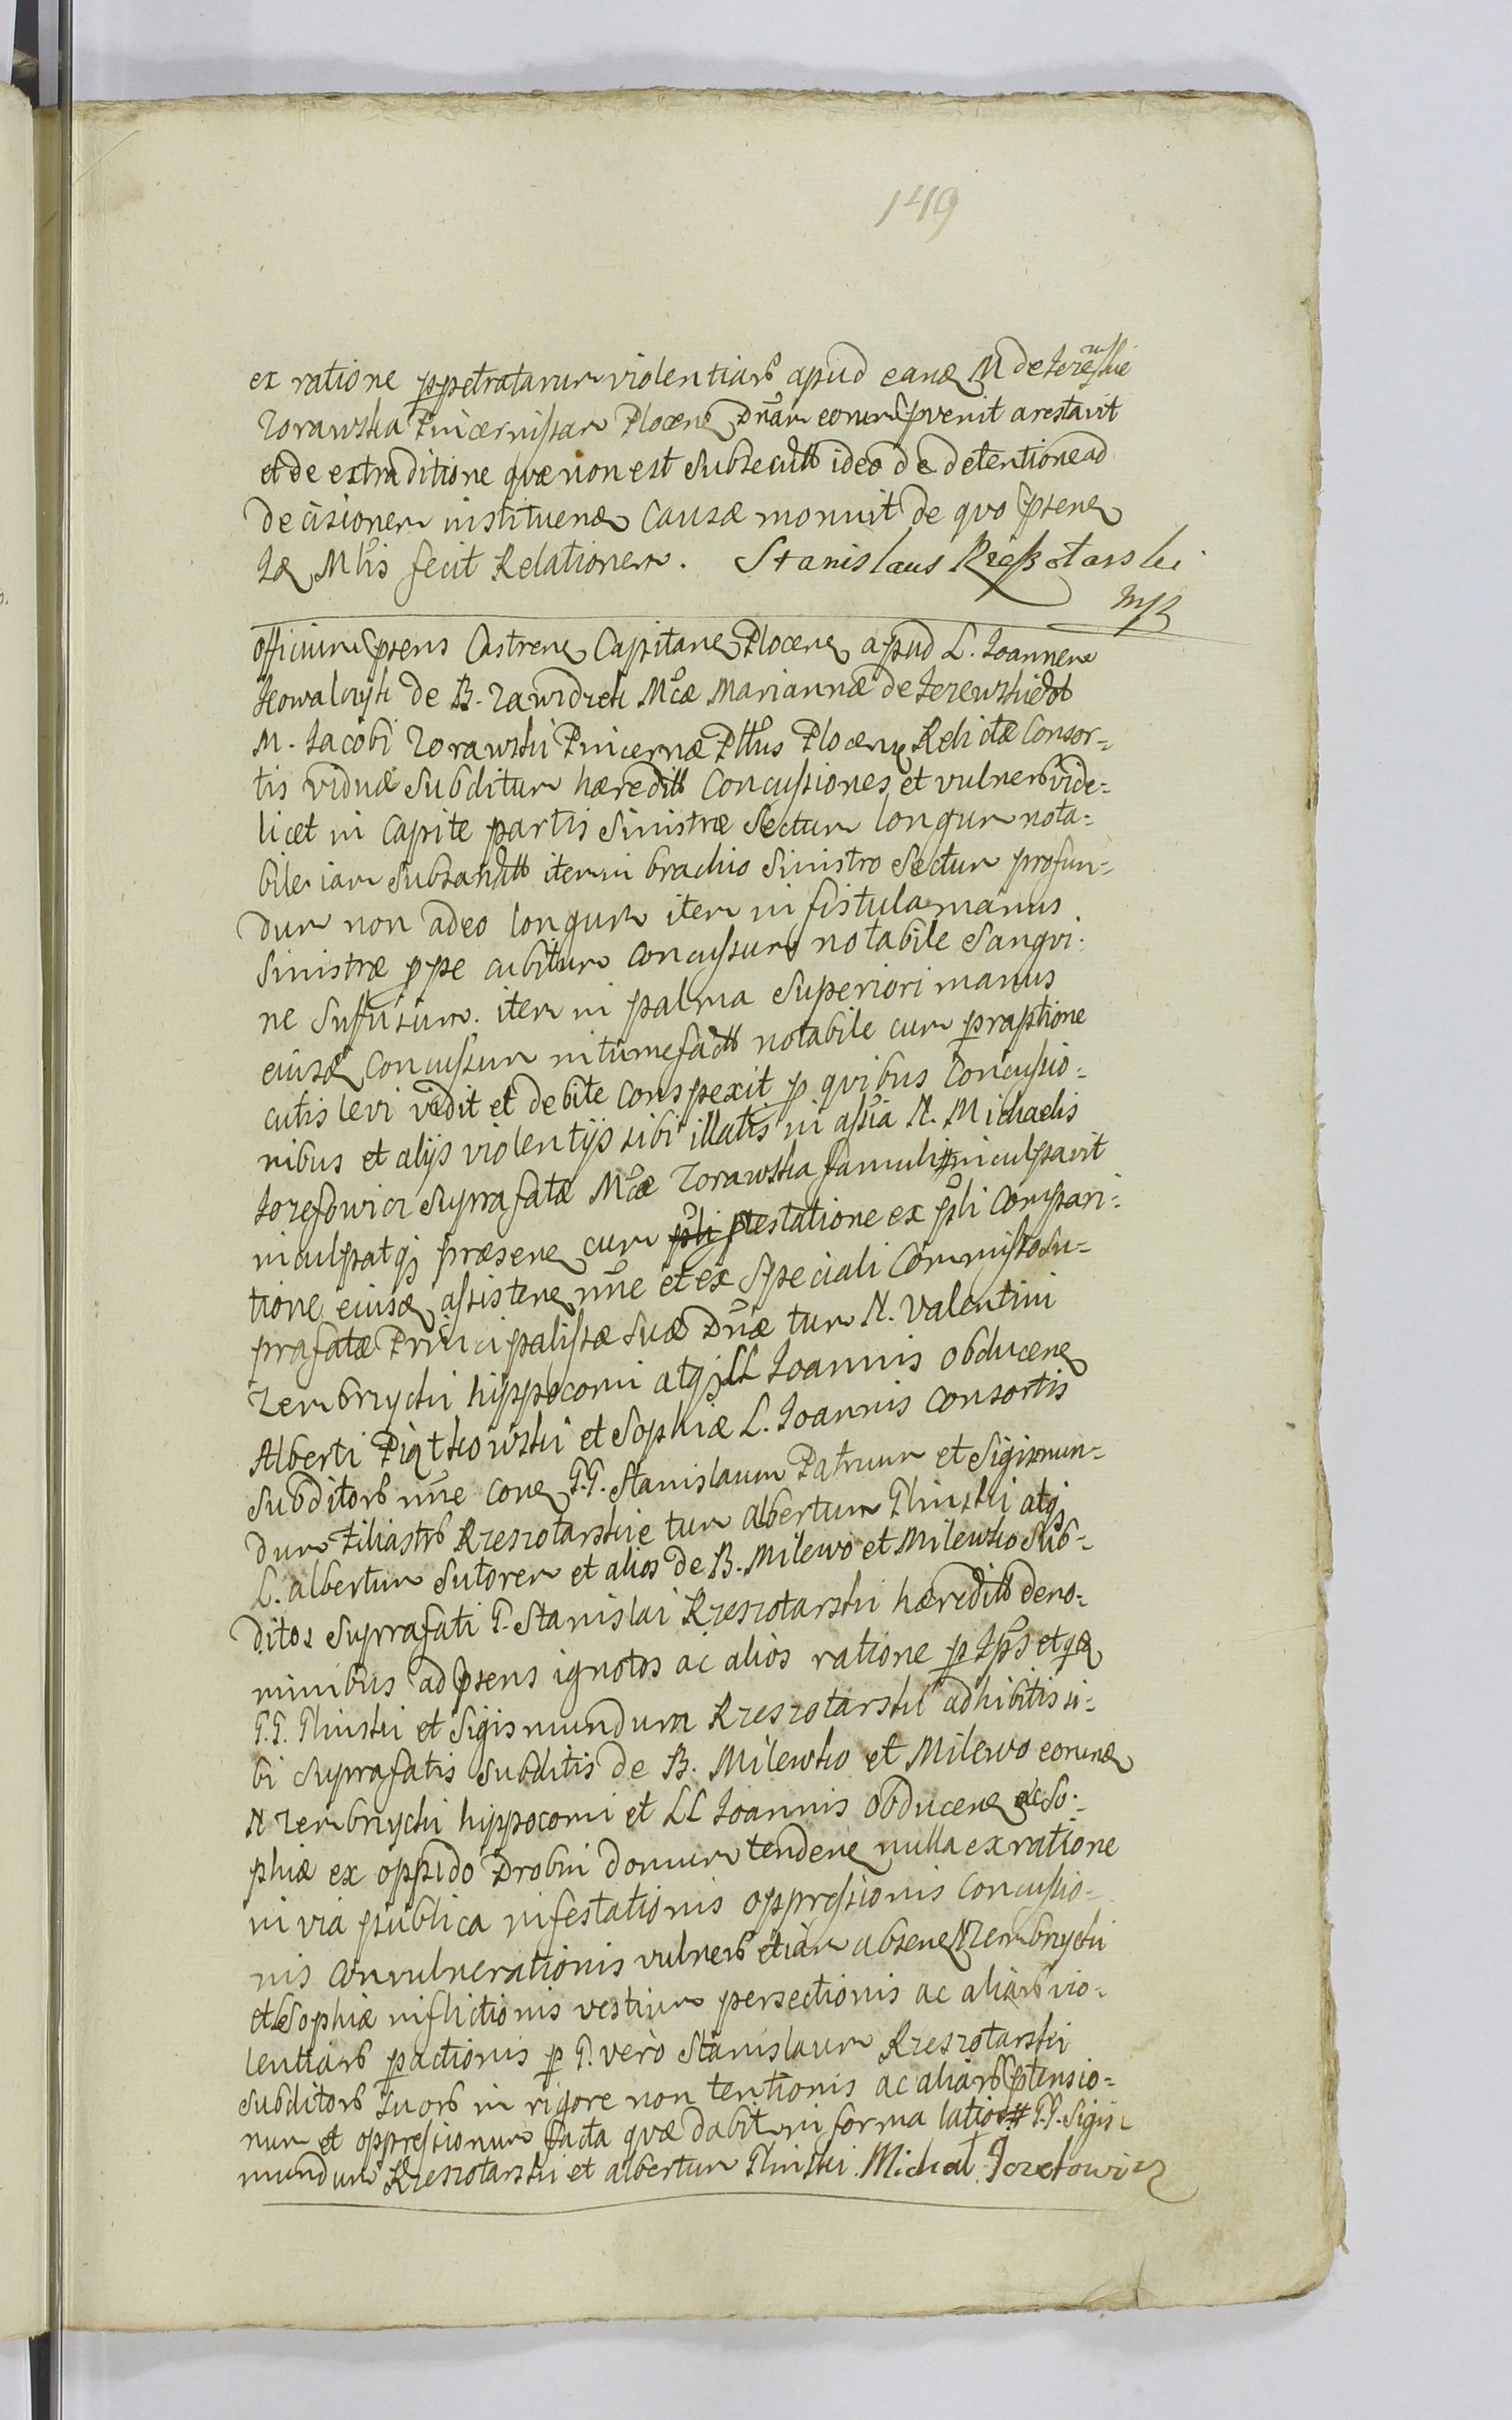 149
ex ratione ppetratarum violentiarb apud eand M de Jezewskie
Zorawska Pincernissam Plocens Dnam eorum pvenit arestavit
et de extraditione quæ non est subsecutt ideo de detentione ad
decisionem instituend Causæ monuit de quo psens
Id Mtris fecit Relationem. Stanislaus Krzesotarski
mp
Officium psens Castrens Capitane Plocens apud L. Joannem
Kowalczyk de B. Zawidzki Mcæ Mariannæ de Jezewskie olt
M. Jacobi Zorawski Pincernæ Plttus Plocens Relictæ Consor=
tis viduæ subditum hæreditt Concussiones et vulnerb vide=
licet in Capite partis Sinistræ Sectum longum nota=
bile iam subsanatt item in brachio Sinistro Sectum profun=
dum non adeo longum item in fistula manus
Sinistræ ppe cubitum concussum notabile Sangvi=
ne suffusum. item in palma Superiori manus
eiusd concussum intumefactt notabile cum praptione
cutis levi vidit et debite conspexit p quibus concussio=
nibus et alijs violentijs sibi illatis in assia N. Michaelis
Jozefowicz Suprafatæ Mcæ Zorawska famuli inculpavit
inculpatq præsens cum ptestatione ex pli compari=
tione eiusd assistens nne et ex Speciali Commisso Su=
prafatæ Principalissæ suæ Dnæ tum N. Valentini
Zembrzycki hippocomi atq LL Joannis obducens
Alberti Piątkowski et Sophiæ L. Joannis Consortis
Subditorb nne cons G.G. Stanislaum Patruum et Sigismun=
dum Filiastrb Krzeszotarskie tum Albertum Glinski atq
L. Albertum Sutorem et alios de B. Milewo et Milewko Sub=
ditos Suprafati G. Stanislai Krzeszotarski hæreditt de no=
minibus ad psens ignotos ac alios ratione p Ipsos et qd
G.G. Glinski et Sigismundum Krzeszotarski adhibitis si=
bi Suprafatis Subditis de B. Milewko et Milewo eorund
N Zembrzycki hippocomi et LL Joannis Obducens ac So=
phiæ ex oppido Drobin domum tendens nulla ex ratione
in via publica infestationis oppressionis Concussio=
nis convulnerationis vulnerb etiam absens N Zembrzycki
et Sophiæ inflictionis vestium persectionis ac aliarb vio=
lentiarb pactionis p G. verò Stanislaum Krzeszotarski
Subditorb Suorb in rigore non tentionis ac aliarb ptensio=
num et oppressionum facta quæ dabit in forma latior # G.G. Sigis=
mundum Krzeszotarski et Albertum Glinski. Michal Jozefowicz